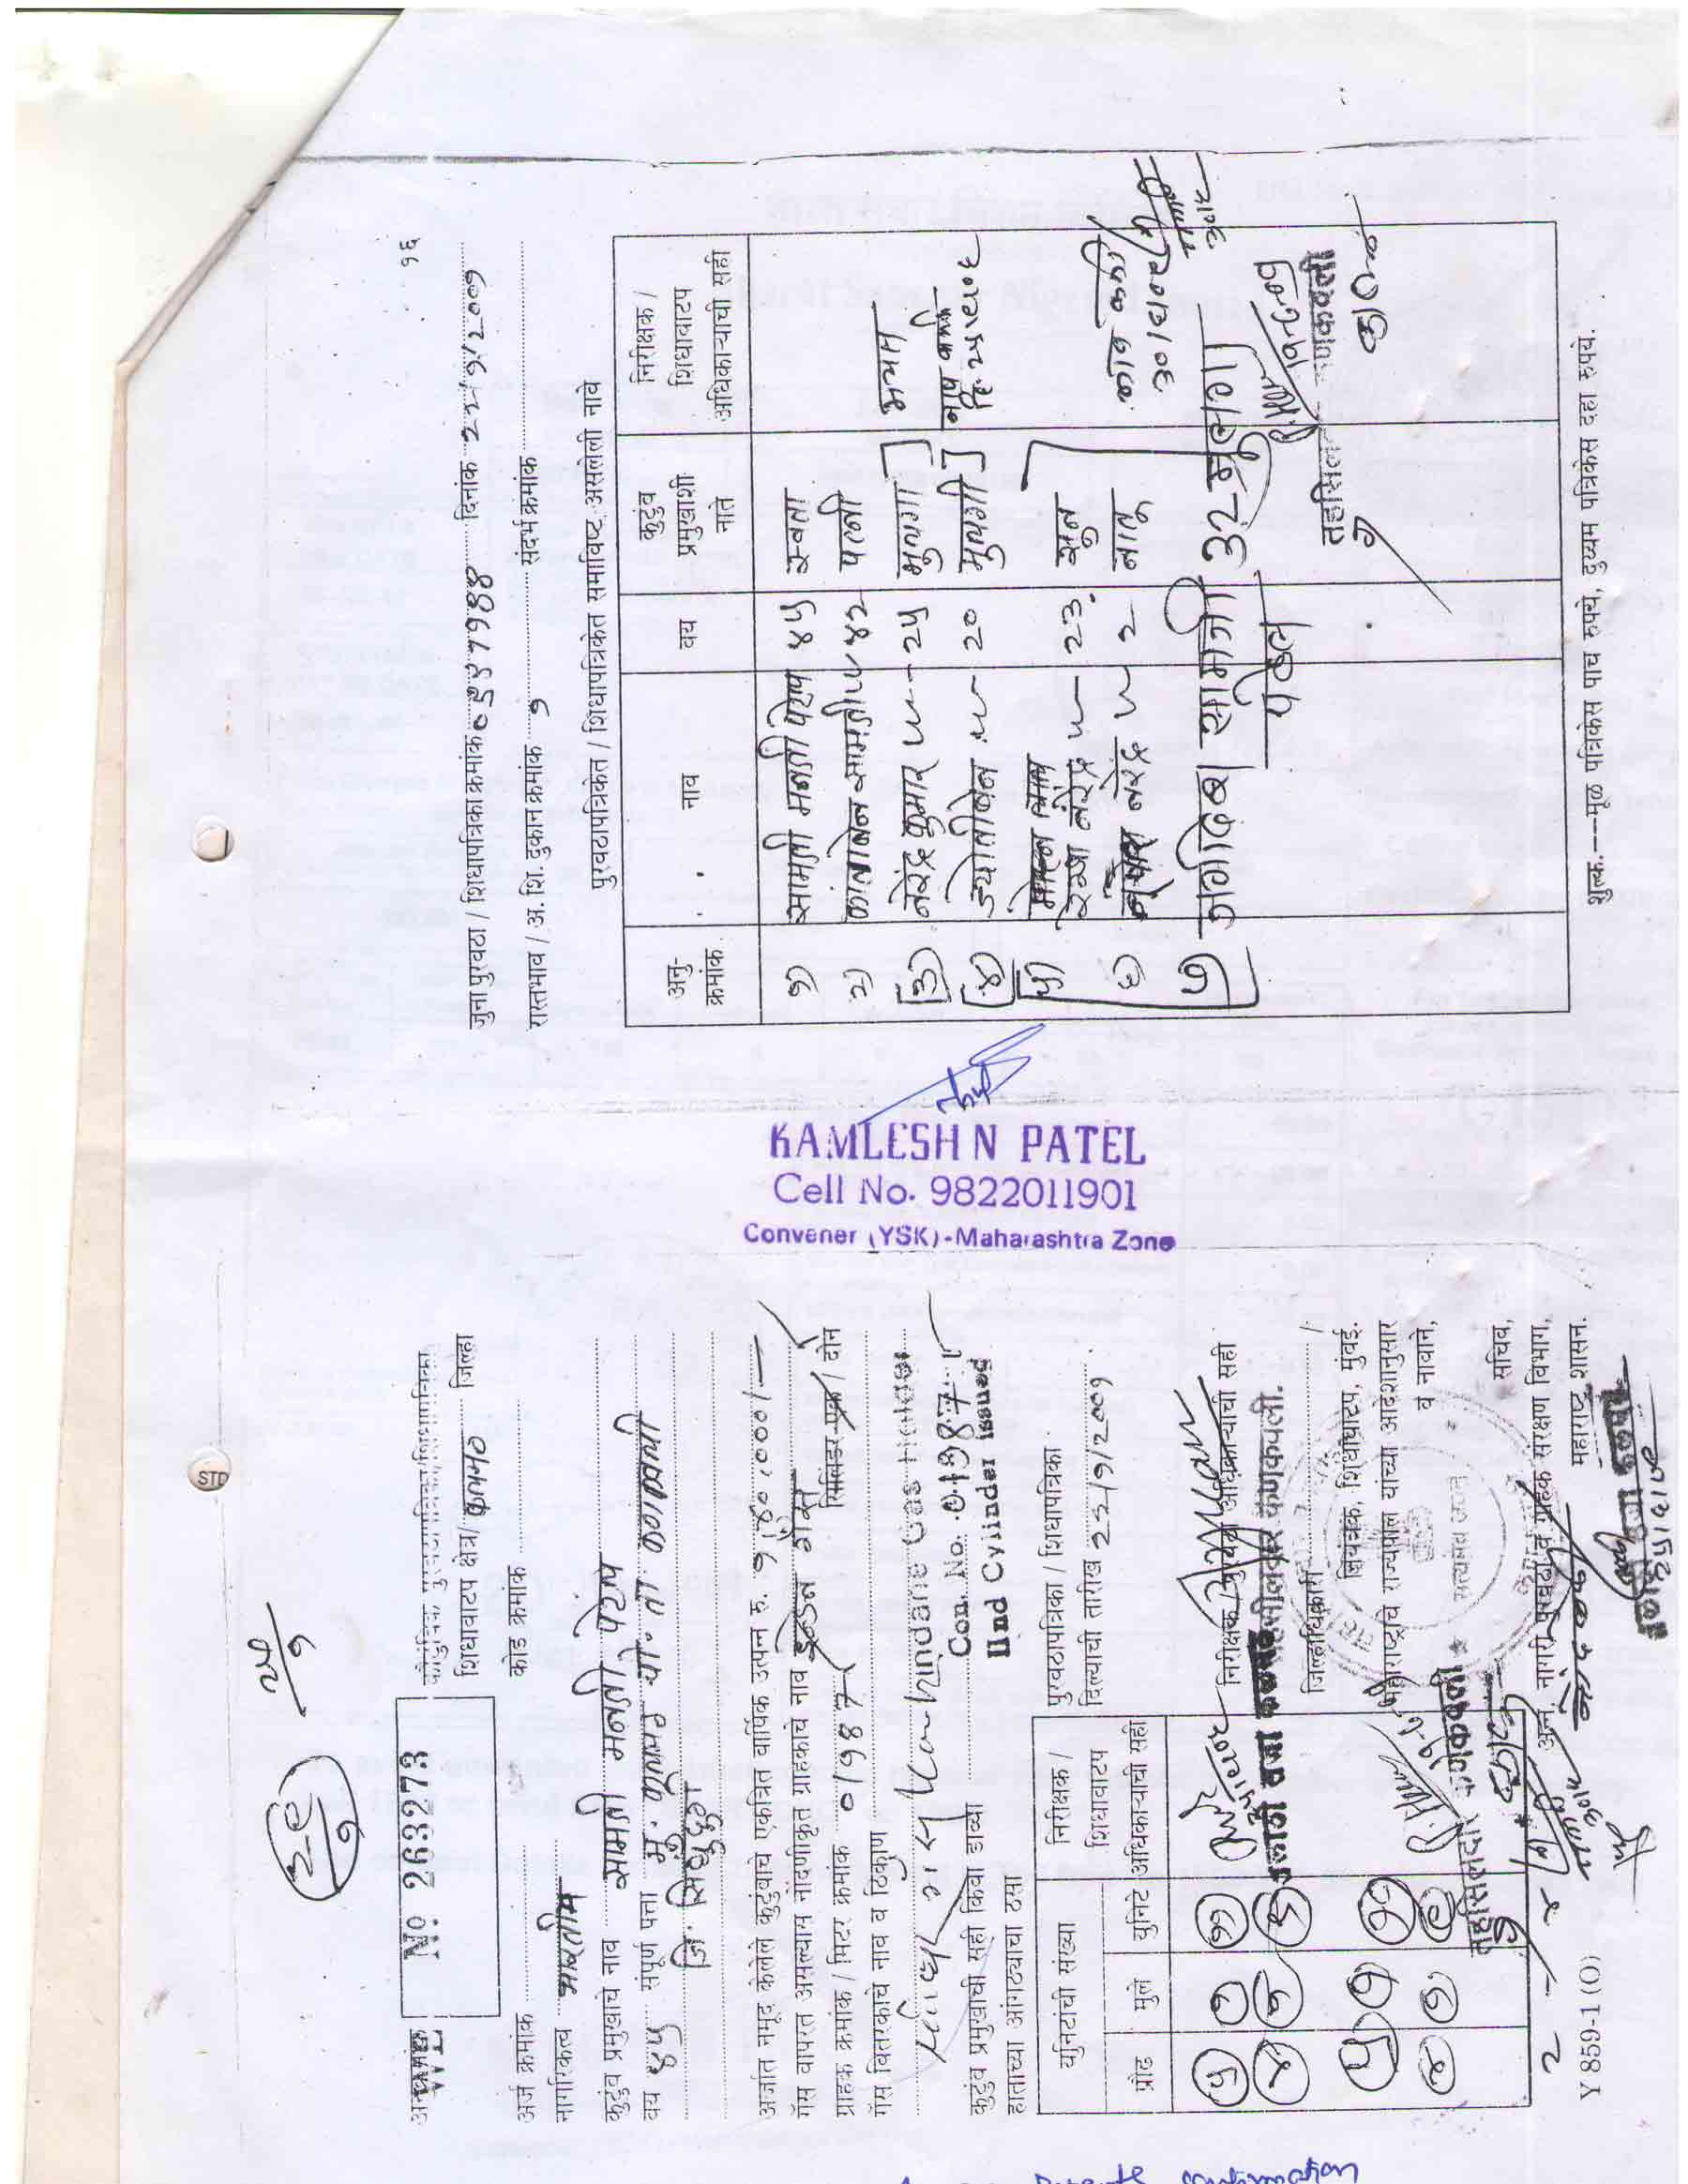 STD
२९
१
२५
१
अनुक्रमांक
WE
No 263273
कौटुंबिक पुरवठापत्रिका/शिधापत्रिका
शिधावाटप क्षेत्र/ कलमठ जिल्हा
अर्ज क्रमांक
कोड क्रमांक
नागरिकत्व भारतीय
कुटुंब प्रमुखाचे नाव सामजी मनजी पटेल
वय ४५ संपूर्ण पत्ता मु. कलमठ पो. ता. कणकवली
जि. सिंधुदुर्ग
अर्जात नमूद केलेले कुटुंबाचे एकत्रित वार्षिक उत्पन्न रु.
गॅस वापरत असल्यास नोंदणीकृत ग्राहकाचे नाव इन्डेन गॅस
ग्राहक क्रमांक / मिटर क्रमांक 01987 सिलिंडर-एक / दोन
गॅस वितरकाचे नाव व ठिकाण
Gas Holder
Con. No. 01987
IInd Cylinder issued
कुटुंब प्रमुखाची सही किंवा डाव्या
हाताच्या आंगठ्याचा ठसा
युनिटांची संख्या
निरीक्षक /
शिधावाटप
अधिकाऱ्याची सही
प्रौढ मुले युनिटे
पुरवठापत्रिका / शिधापत्रिका
दिल्याची तारीख 22/9/2009
५ १ ११
४ १
५ १ ११
४ १ ९
निरीक्षक / पुरवठा अधिकाऱ्याची सही
तलाठी सजा कळमठ
तहसीलदार कणकवली.
जिल्हाधिकारी
नियंत्रक, शिधावाटप, मुंबई.
महाराष्ट्राचे राज्यपाल यांच्या आदेशानुसार
व नावाने,
सत्यमेव जयते
तहसिलदार कणकवली
सचिव,
अन्न, नागरी पुरवठा व ग्राहक संरक्षण विभाग,
महाराष्ट्र शासन.
Y 859-1 (O)
तलाठी सजा कळमठ
KAMLESH N PATEL
Cell No. 9822011901
Convener (YSK)-Maharashtra Zone
१६
जुना पुरवठा / शिधापत्रिका क्रमांक दिनांक 22/9/2009
रास्तभाव / अ. शि. दुकान क्रमांक १ संदर्भ क्रमांक
पुरवठापत्रिकेत / शिधापत्रिकेत समाविष्ट असलेली नावे
अनु-
क्रमांक
नाव
वय
कुटुंब
प्रमुखाशी
नाते
निरीक्षक /
शिधावाटप
अधिकाऱ्याची सही
१) सामजी मनजी पटेल ४५ स्वता
२) कांताबेन सामजी ४२ पत्नी
३) नरेंद्र कुमार २५ मुलगा
४) ज्योतीबेन २० मुलगी
५) रेखा नरेंद्र २३ सून
६) नरेंद्र २ नातू
नाव कमी
७) जगदिश सामजी ३२ मुलगा
पटेल
तहसिलदार कणकवली
शुल्क.---मूळ पत्रिकेस पाच रुपये, दुय्यम पत्रिकेस दहा रुपये.